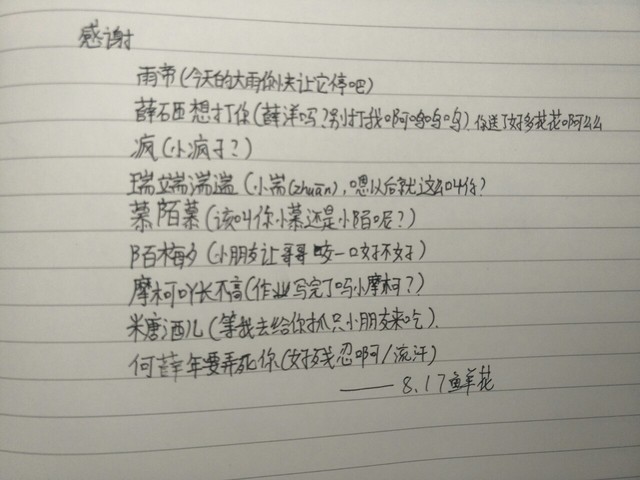 感谢
雨帝(今天的大雨你快让它停吧)
薛石西想打你(薛洋吗?别打我啊呜呜呜)你送了好多花花啊么么
疯(小疯子?)
瑞端湍遄(小耑(zhuān),嗯以后就这么叫你?
慕陌慕(该叫你小慕还是小陌呢?)
陌梅夕(小朋友让哥哥咬一口好不好)
摩柯吖长不高(作业写完了吗小摩柯?)
米唐洒儿(等我去给你抓只小朋友来吃)
何薛年要弄死你(好残忍啊/流汗)
——8.17鲜花